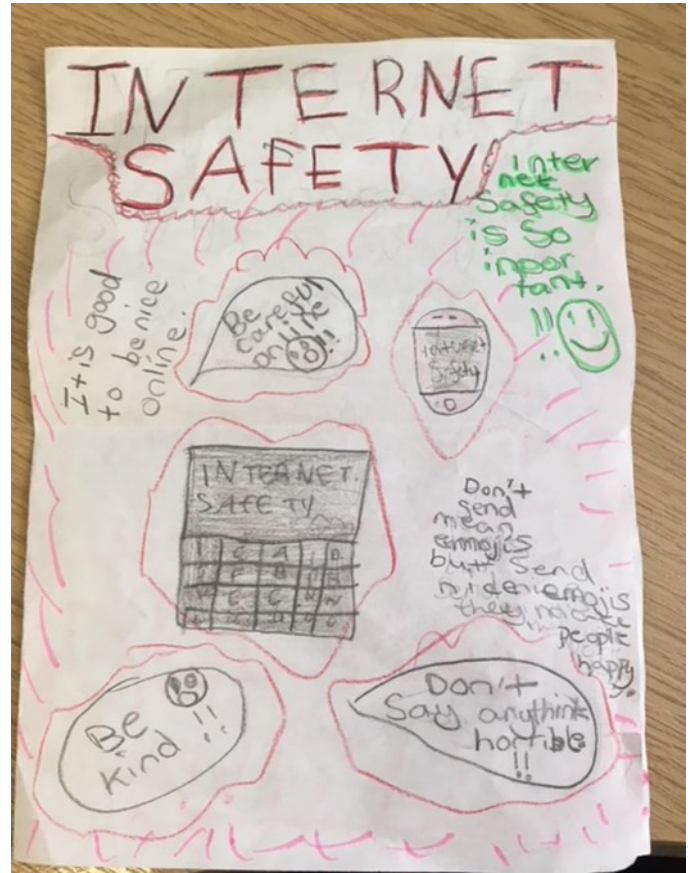 INTERNET
SAFETY
inter
net
Safety
is So
inpor
tant.
!!
It is good
to be nice
online.
Be
careful
online
!!
internet
Safety
INTERNET
SAFETY
Don't
send
mean
emmojis
butt Send
emojis
they
people
happy.
Be
Kind !!
Don't
Say anythink
horrible
!!